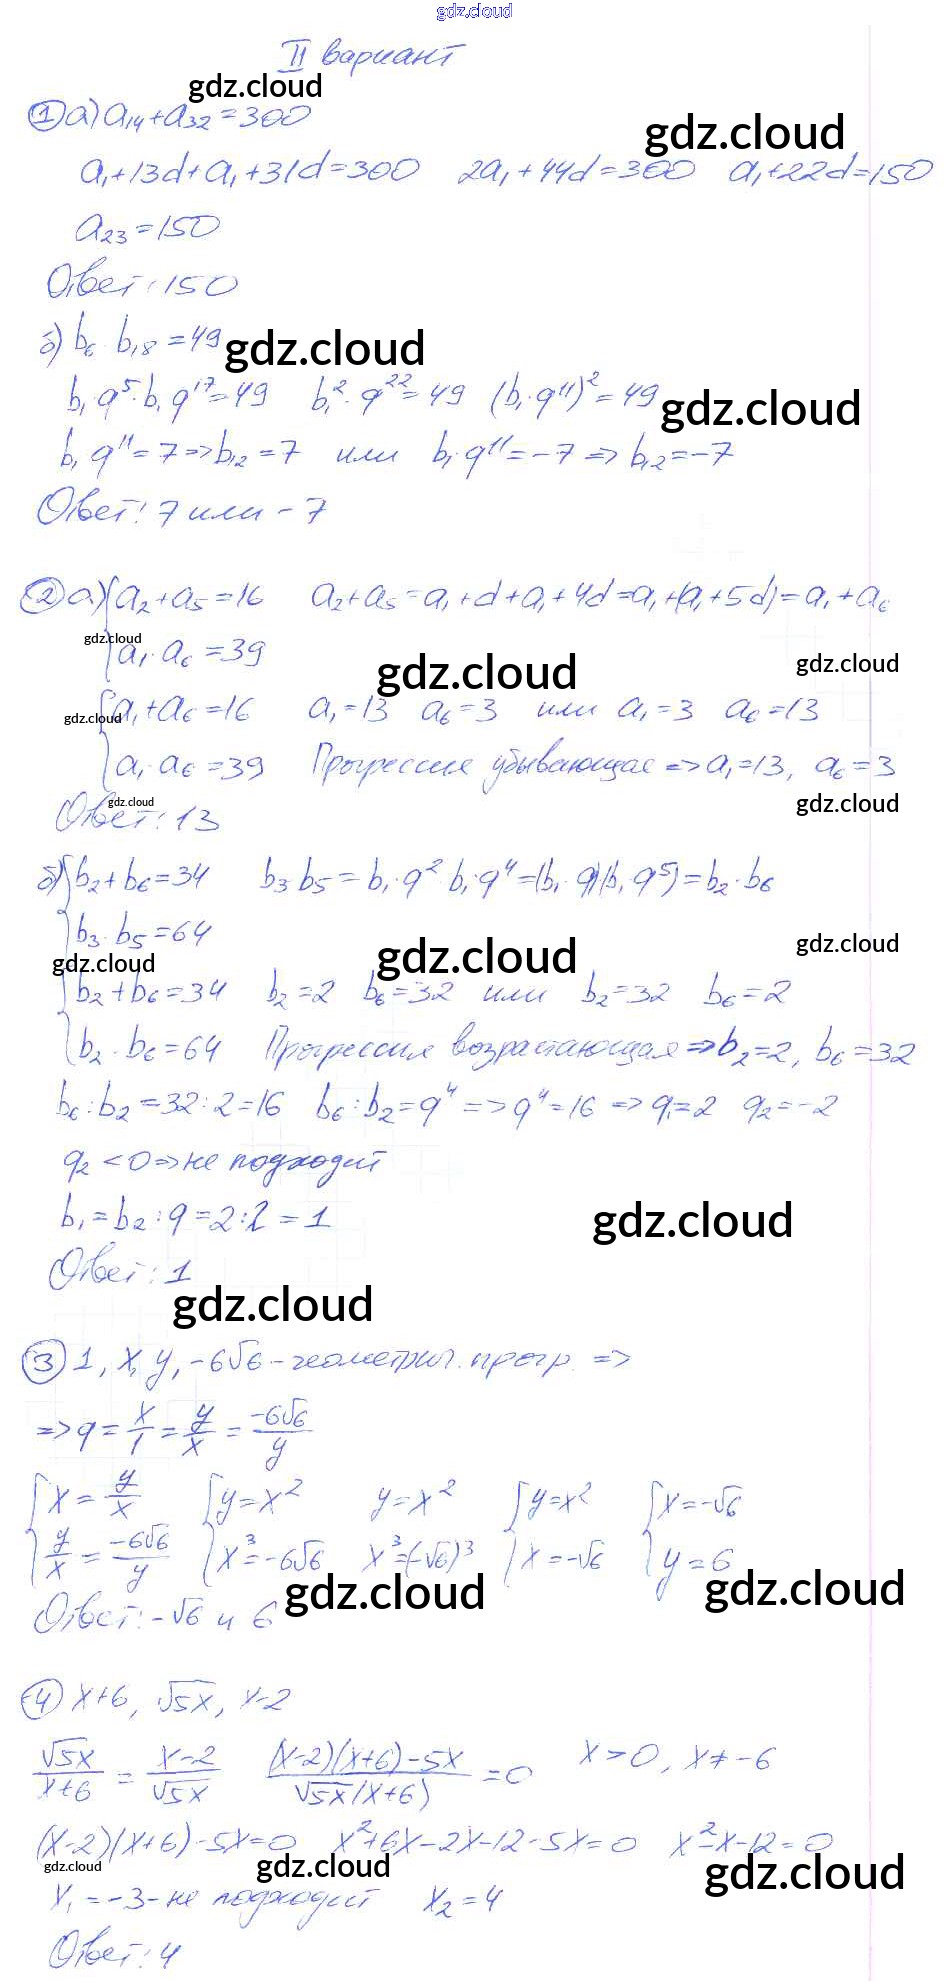 gdz.cloud
II вариант
gdz.cloud
① а) a₁₄+a₃₂=300
gdz.cloud
a₁+13d+a₁+31d=300 2a₁+44d=300 a₁+22d=150
a₂₃=150
Ответ: 150
б) b₆·b₁₈=49 gdz.cloud
b₁·q⁵·b₁q¹⁷=49 b₁²·q²²=49 (b₁·q¹¹)²=49 gdz.cloud
b₁q¹¹=7=>b₁₂=7 или b₁·q¹¹=-7=>b₁₂=-7
Ответ: 7 или -7
② а) { a₂+a₅=16 a₂+a₅=a₁+d+a₁+4d=a₁+(a₁+5d)=a₁+a₆
gdz.cloud
a₁·a₆=39
gdz.cloud gdz.cloud
gdz.cloud
{ a₁+a₆=16 a₁=13 a₆=3 или a₁=3 a₆=13
a₁·a₆=39 Прогрессия убывающая => a₁=13, a₆=3
gdz.cloud gdz.cloud
Ответ: 13
б) { b₂+b₆=34 b₃·b₅=b₁·q²·b₁·q⁴=(b₁·q)(b₁·q⁵)=b₂·b₆
b₃·b₅=64
gdz.cloud gdz.cloud gdz.cloud
{ b₂+b₆=34 b₂=2 b₆=32 или b₂=32 b₆=2
b₂·b₆=64 Прогрессия возрастающая => b₂=2, b₆=32
b₆:b₂=32:2=16 b₆:b₂=q⁴=>q⁴=16=>q₁=2 q₂=-2
q₂<0=>не подходит
b₁=b₂:q=2:2=1
gdz.cloud
Ответ: 1
gdz.cloud
③ 1, x, y, -6√6 - геометрич. прогр. =>
=> q=x/1=y/x=-6√6/y
{ x=y/x { y=x² y=x² { y=x² { x=-√6
y/x=-6√6/y x³=-6√6 x³=(-√6)³ x=-√6 y=6
gdz.cloud gdz.cloud
Ответ: -√6 и 6
④ x+6, √5x, x-2
√5x/x+6=x-2/√5x (x-2)(x+6)-5x/√5x(x+6)=0 x>0, x≠-6
(x-2)(x+6)-5x=0 x²+6x-2x-12-5x=0 x²-x-12=0
gdz.cloud gdz.cloud gdz.cloud
x₁=-3-не подходит x₂=4
Ответ: 4